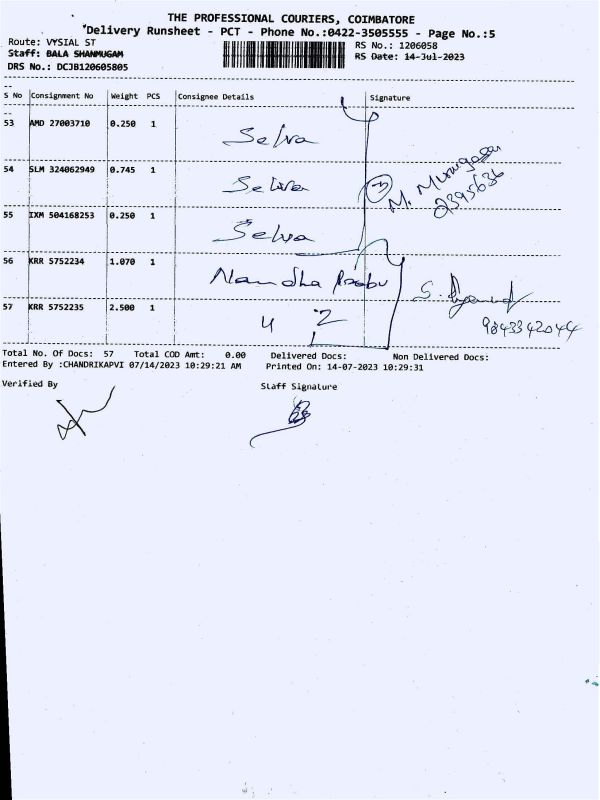 THE PROFESSIONAL COURIERS, COIMBATORE
"Delivery Runsheet - PCT - Phone No.:0422-3505555 - Page No.:5
Route: VYSIAL ST
RS No.: 1206058
Staff: BALA SHANMUGAM
RS Date: 14-Jul-2023
DRS No.: DCJB120605805
S No Consignment No Weight PCS Consignee Details Signature
53 AMD 27003710 0.250 1 Selva
54 SLM 324062949 0.745 1 Selva
M. Murugesan
55 IXM 504168253 0.250 1 Selva
56 KRR 5752234 1.070 1 Nandha
57 KRR 5752235 2.500 1 4 2
9843342044
Total No. Of Docs: 57 Total COD Amt: 0.00 Delivered Docs: Non Delivered Docs:
Entered By :CHANDRIKAPVI 07/14/2023 10:29:21 AM Printed On: 14-07-2023 10:29:31
Verified By Staff Signature